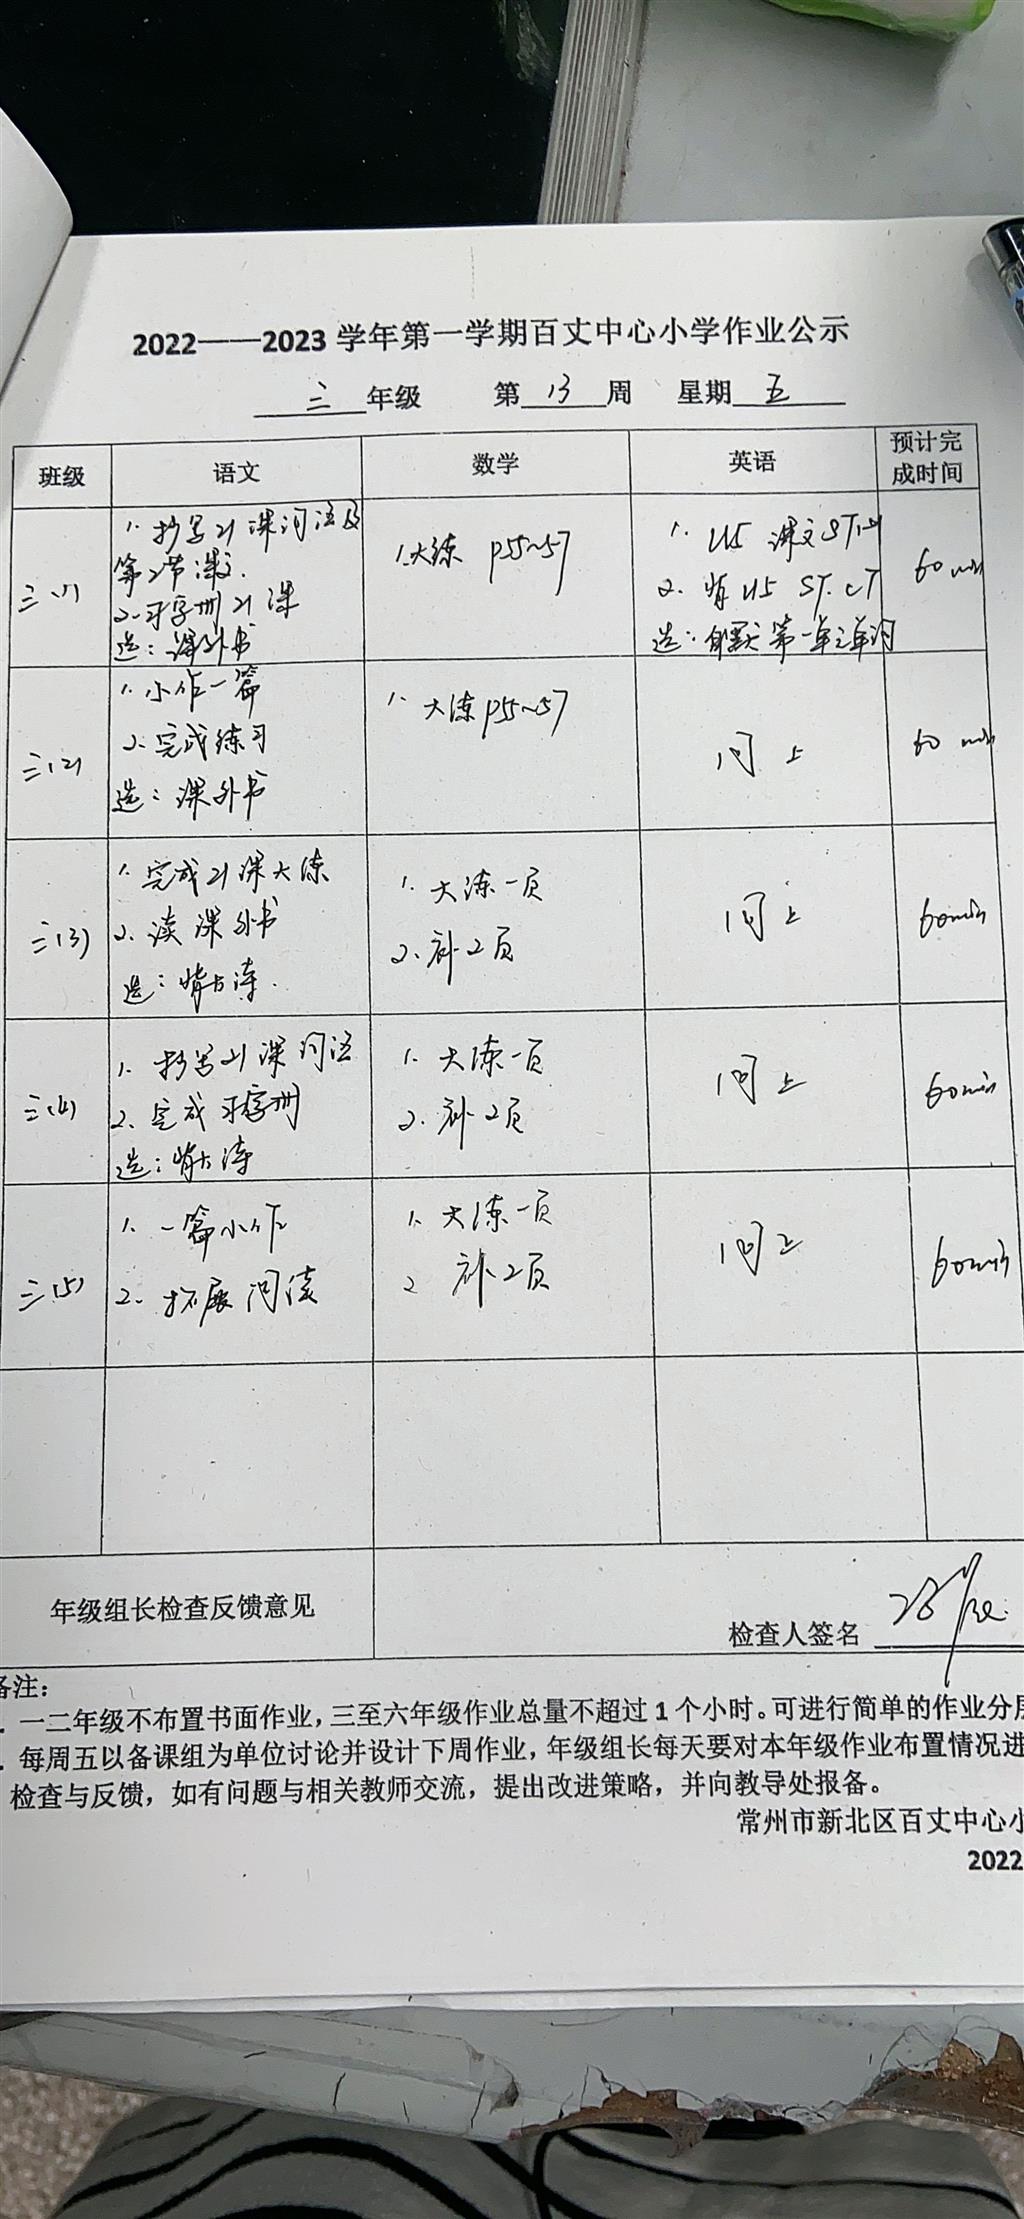 2022——2023 学年第一学期百丈中心小学作业公示
三 年级 第 13 周 星期 五
班级 语文 数学 英语 预计完成时间
三(1)
1. 抄写21课词语及
第2节课文.
2. 习字册21课
选：课外书
1.大练 P55~57
1. U5 课文ST
2. 背U5 ST. CT
选：自默第一单元单词
60 min
三(2)
1. 小作一篇
2. 完成练习
选：课外书
1. 大练P55~57
同上
60 min
三(3)
1. 完成21课大练
2. 读课外书
选：背古诗.
1. 大练一页
2. 补2页
同上
60min
三(4)
1. 抄写21课词语
2. 完成习字册
选：背古诗
1. 大练一页
2. 补2页
同上
60min
三(5)
1. 一篇小作
2. 拓展阅读
1. 大练一页
2 补2页
同上
60min
年级组长检查反馈意见
检查人签名
备注：
. 一二年级不布置书面作业，三至六年级作业总量不超过 1 个小时。可进行简单的作业分层
. 每周五以备课组为单位讨论并设计下周作业，年级组长每天要对本年级作业布置情况进
检查与反馈，如有问题与相关教师交流，提出改进策略，并向教导处报备。
常州市新北区百丈中心小
2022